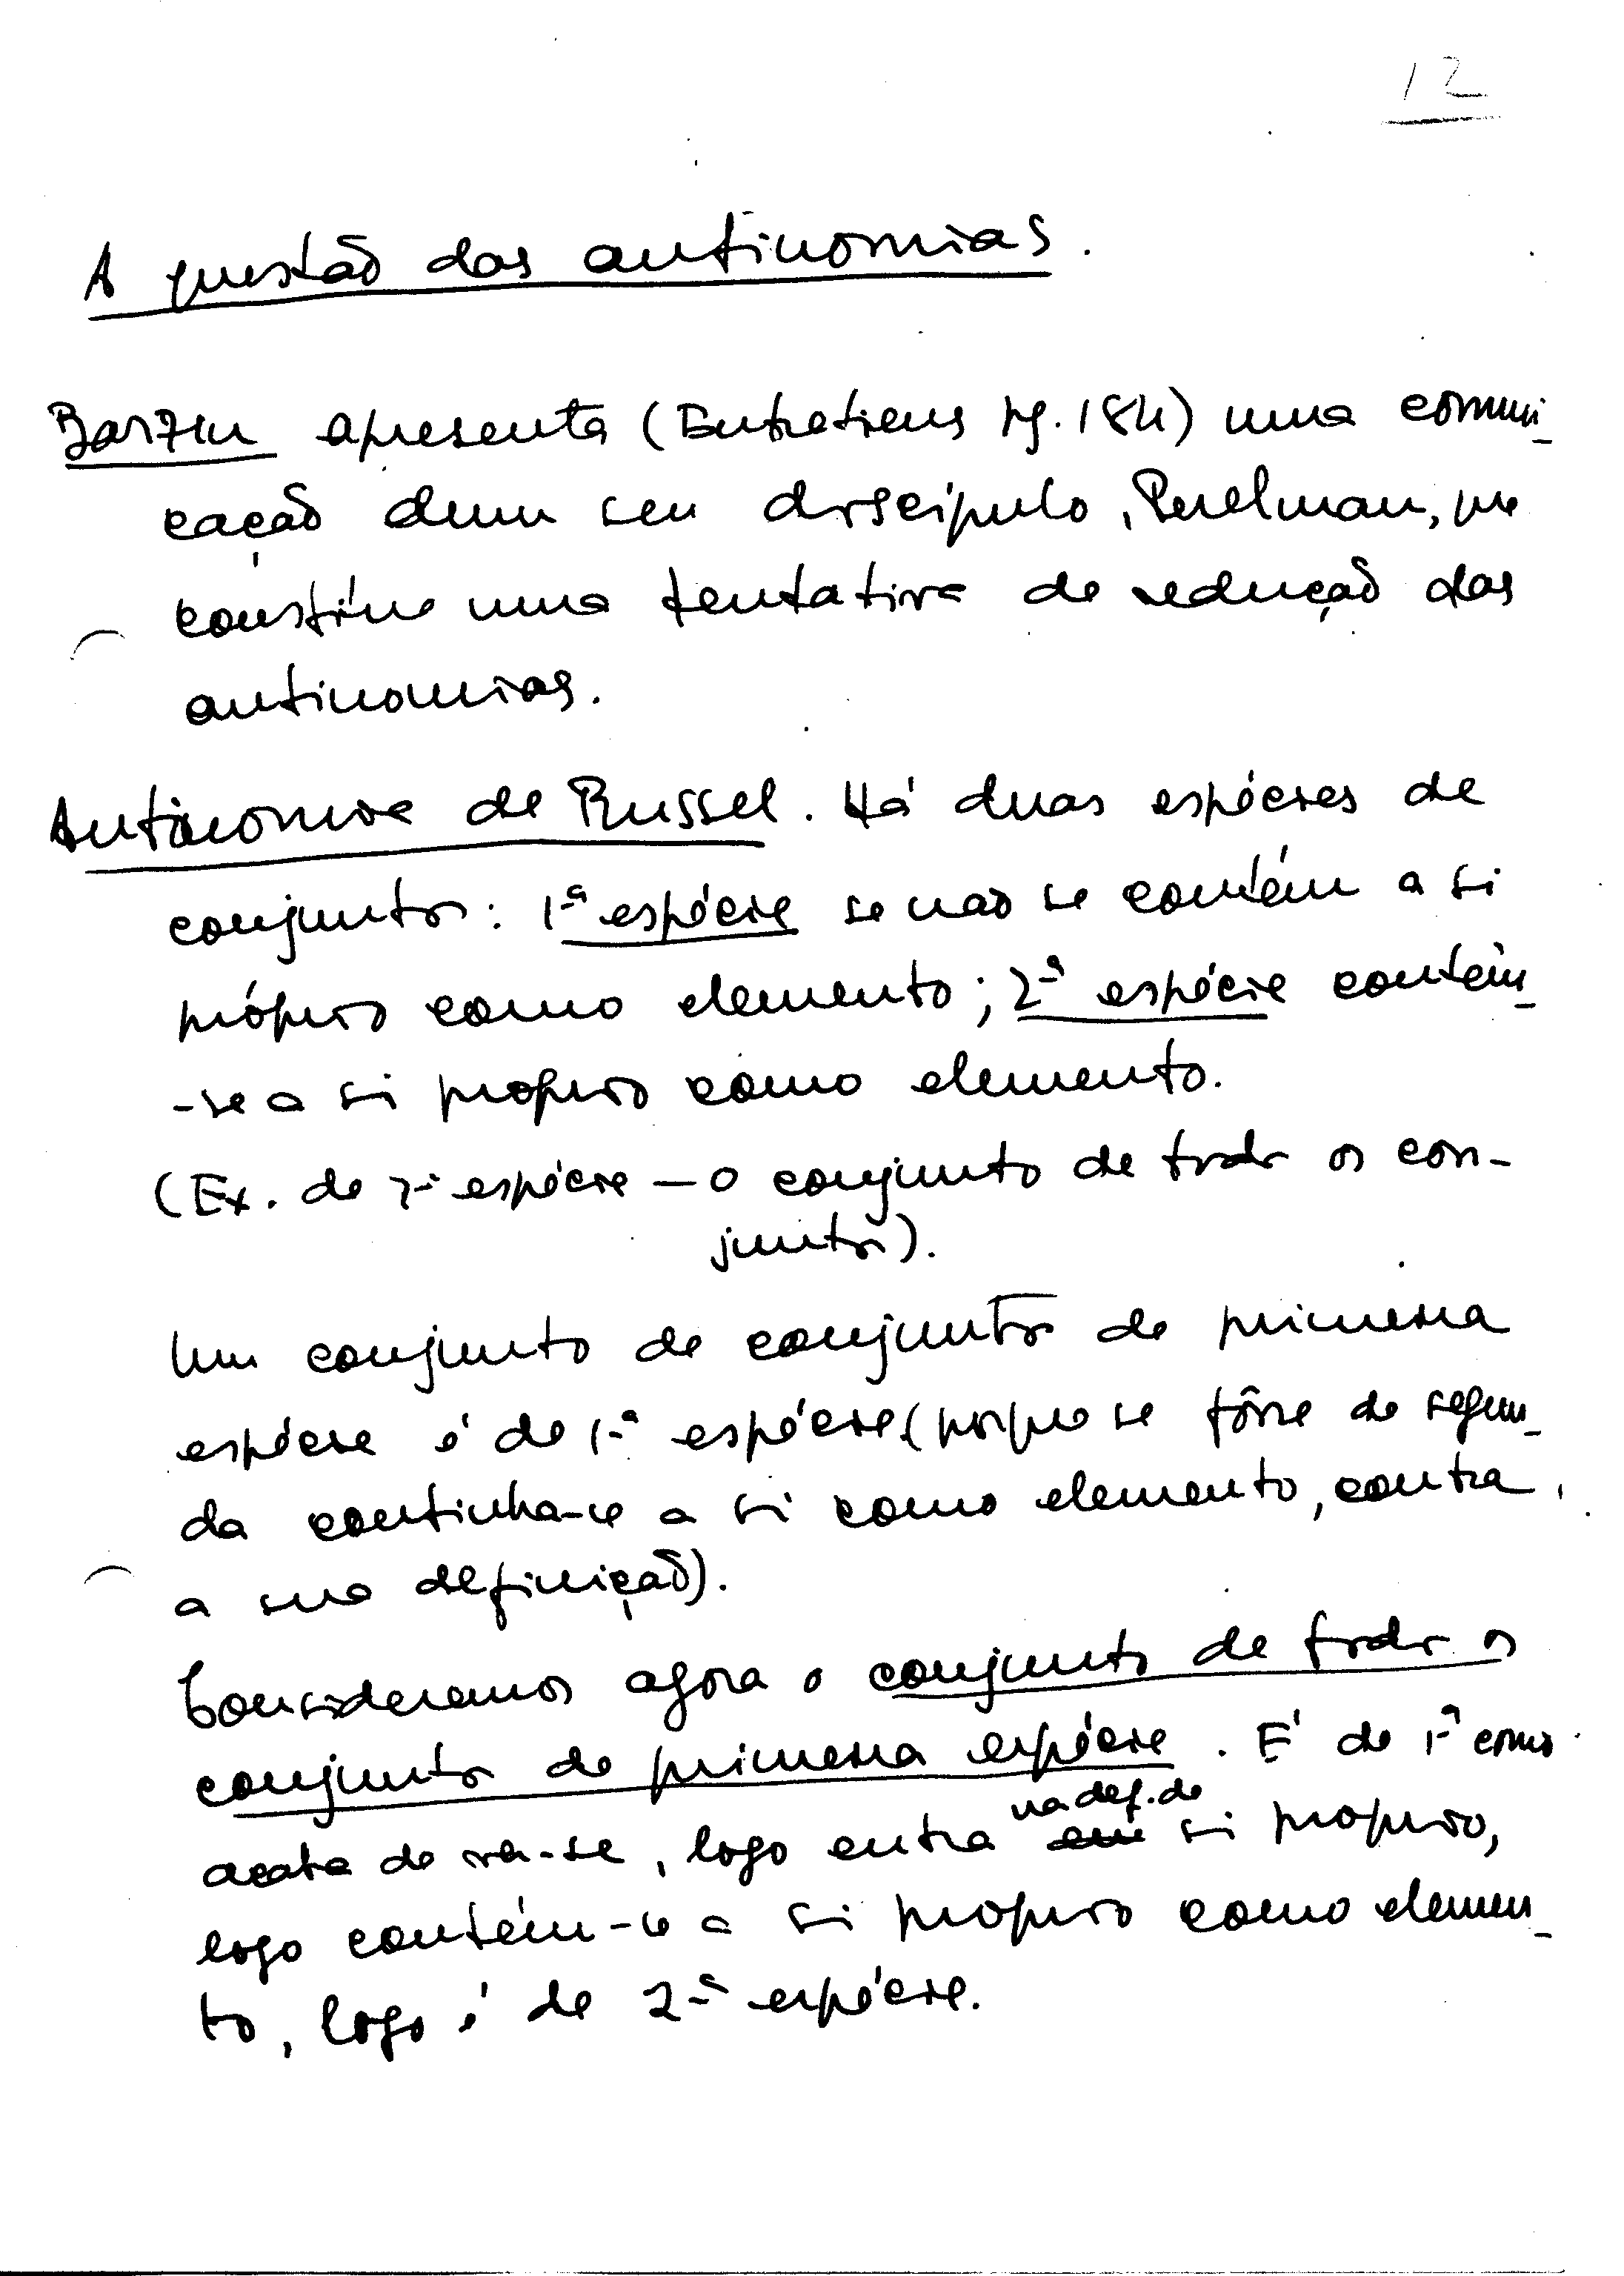 12
A questão das antinomias.
Barzin apresenta (Entretiens pg. 184) uma comuni-
cação dum seu discípulo, Perelman, que
constitue uma tentativa de redução das
antinomias.
Antinomia de Russel. Há duas espécies de
conjuntos: 1ª espécie se não se contém a si
próprio como elemento; 2ª espécie contém-
-se a si proprio como elemento.
(Ex. de 2ª espécie — o conjunto de todos os con-
juntos).
Um conjunto de conjuntos de primeira
espécie é de 1ª espécie (porque se fôsse de segun-
da continha-se a si como elemento, contra
a sua definição).
Consideramos agora o conjunto de todos os
conjuntos de primeira espécie. E' de 1ª como
na def. de
acaba de ver-se, logo entra em si proprio,
logo contém-se a si proprio como elemen-
to, logo é de 2ª espécie.